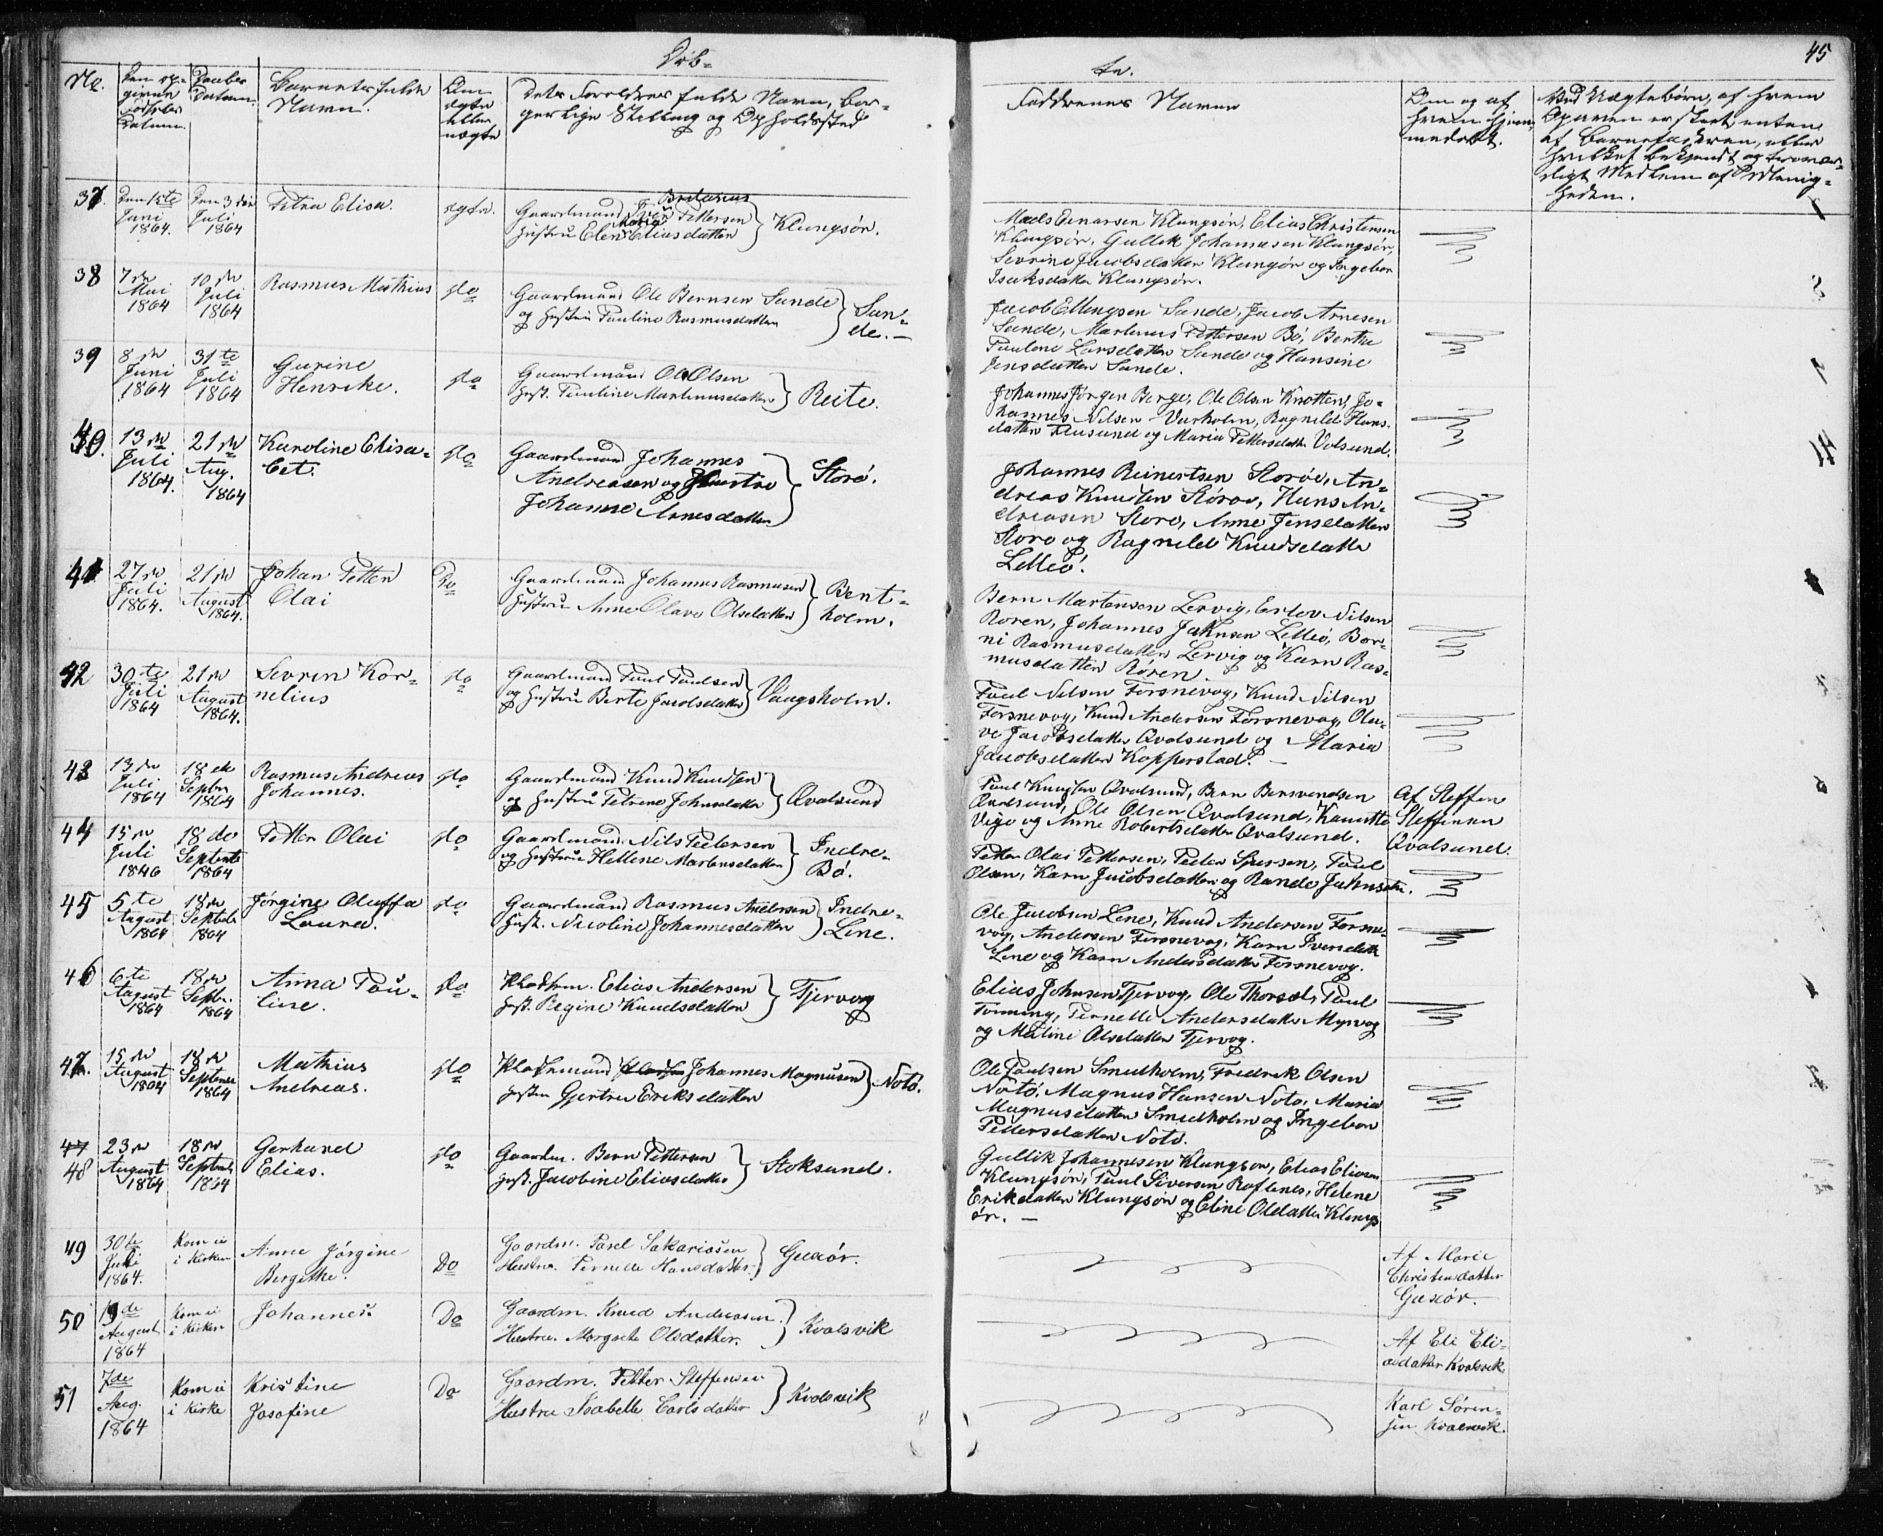 45
Døb-
te.
No.
Den op-
givne
Fødsels
Datum
Daabs
Datum
Barnets fulde
Navn.
Om
ægte
eller
uægte
Dets Forældres fulde Navn, bor-
gerlige Stilling og Opholdssted
Faddrenes Navne
Om og af
hvem hjem-
medøbt.
Ved Uægtebørn, af hvem
Opgaven er skeet enten
af Barnefaderen, eller
hvilket bekjendt og trovær-
digt Medlem af Menig-
heden.
37.
Den 15te
Juni
1864.
Den 3die
Juli
1864
Petra Elisa.
ægte.
Gaardmand Pettersen
Hustru Elen Eliasdatter
Klungsör.
Mads Einarsen Klungsör, Elias Christensen
Klungsör, Gullik Johannesen Klungsör,
Sevrine Jacobsdatter Klungsör og Ingebor
Isaksdatter Klungsör.
38
7de
Mai
1864
10de
Juli
1864
Rasmus Mathias
do
Gaardmand Ole Bernsen Sande
og Hustru Pauline Rasmusdatter
San-
de.
Jacob Ellingsen Sande, Jacob Arnesen
Sande, Martinus Pettersen Bö, Berthe
Pauline Larsdatter Sande og Hansine
Jensdatter Sande.
39
8de
Juni
1864
31te
Juli
1864
Gurine
Henrike.
do
Gaardmand Ole Olsen
Hust. Pauline Martinusdatter
Reite.
Johannes Jörgen Berge, Ole Olsen Knotten, Jo-
hannes Nilsen Varholm, Ragnild Hans-
datter Flusund og Maria Pettersdatter Volsund.
40.
13de
Juli
1864.
21de
Aug.
1864
Karoline Elisa-
bet.
do
Gaardmand Johannes
Andreasen og Hustru
Johanne Arnesdatter
Storö.
Johannes Reinertsen Storöe, An-
dreas Knudsen Störöe, Hans An-
dreasen Storö, Anne Jensdatter
Storö og Ragnild Knudsdatter
Lilleö.
41.
27de
Juli
1864.
21de
August
1864.
Johan Petter
Olai
Do
Gaardmand Johannes Rasmusen
Hustru Anne Olave Olsdatter
Bent-
holm.
Bern Martensen Lervig, Erlov Nilsen
Rören, Johannes Johnsen Lilleö, Bor-
ni Rasmusdatter Lervig og Karn Ras-
musdatter Rören.
42
30te
Juli
1864
21de
August
1864.
Sevrin Kor-
nelius
do
Gaardmand Paul Paulsen
og Hustru Berte Jacobsdatter
Vaagsholm.
Paul Nilsen Försnevog, Knud Nilsen
Försnevog, Knud Andersen Försnevog, Ola-
ve Jacobsdatter Qvalsund og Maria
Jacobsdatter Kopperstad.
43
13de
Juli
1864
18de
Septbr
1864
Rasmus Andreas
Johannes.
do
Gaardmand Knud Knudsen
og Hustru Petrine Johnsdatter
Qvalsund
Paul Knudsen Qvalsund, Bern Bersvendsen
Qvalsund, Ole Olsen Qvalsund, Kanutte
Vigo og Anne Robertsdatter Qvalsund.
Af Steffen
Steffensen
Qvalsund.
44
15de
Juli
1846
18de
Septembr
1864
Petter Olai
do
Gaardmand Nils Pedersen
og Hustru Helline Martensdatter
Indre-
Bö.
Petter Olai Pettersen, Peder Sjursen, Poul
Olsen, Karn Jacobsdatter og Rande Johnsdtr.
45
5te
August
1864
18de
Septbr
1864
Jörgine Oluffa
Laura.
do
Gaardmand Rasmus Andersen
Hust. Nicoline Johannesdatter
Indre-
Line.
Ole Jacobsen Line, Knud Andersen Försne-
vog, Andersen Försnevog, Karn Svendsdtr
Line og Karn Andersdatter Försnevog.
46
6te
August
1864
18de
Septbr.
1864
Anna Pou-
line.
do.
Pladsm. Elias Andersen
Hust. Regine Knudsdatter
Tjervog
Elias Johnsen Tjervog, Ole Thorsed, Paul
Tönning, Pernelle Andersdatter Myrvog
og Maline Olsdatter Tjervog.
47.
15de
August
1864
18de
September
1864
Mathias
Andreas.
do
Pladsmand Johannes Magnusen
Hustru Gjertru Eriksdatter
Notö.
Ole Poulsen Smedholm, Fredrik Olsen
Nötö, Magnus Hansen Notö, Maria
Magnusdatter Smedholm og Ingebor
Pettersdatter Notö.
47
48
23de
August
1864
18de
Septbr
1864
Gerhard
Elias.
do
Gaardm. Bern Pettersen
Hust. Jacobine Eliasdatter
Stoksund.
Gullik Johannesen Klungsör, Elias Eliasen
Klungsör, Paul Siversen Röflenes, Helene
Eriksdatter Klungsör og Eline Olsdatter Klungs
ör.
49
30te
Juli
1864.
Kom ei
i Kirken
Anne Jörgine
Bergitte.
Do
Gaardm. Parel Sakariasen
Hustru. Pernille Hansdatter.
Guxör.
Af Marie
Christendatter
Guxör.
50
19de
August
1864
Kom ei
i Kirken
Johannes.
Do
Gaardm. Knud Andreasen.
Hustru. Margrete Olsdatter.
Kvalsvik
Af Eli Eli-
asdatter Kvalsvik
51
7de
Aug.
1864
Kom ei
i Kirke
Kristine
Josefine
Do
Gaardm. Petter Steffensen
Hustru Isabelle Carlsdatter
Kvalsvik
Karl Sören-
sen Kvalsvik.